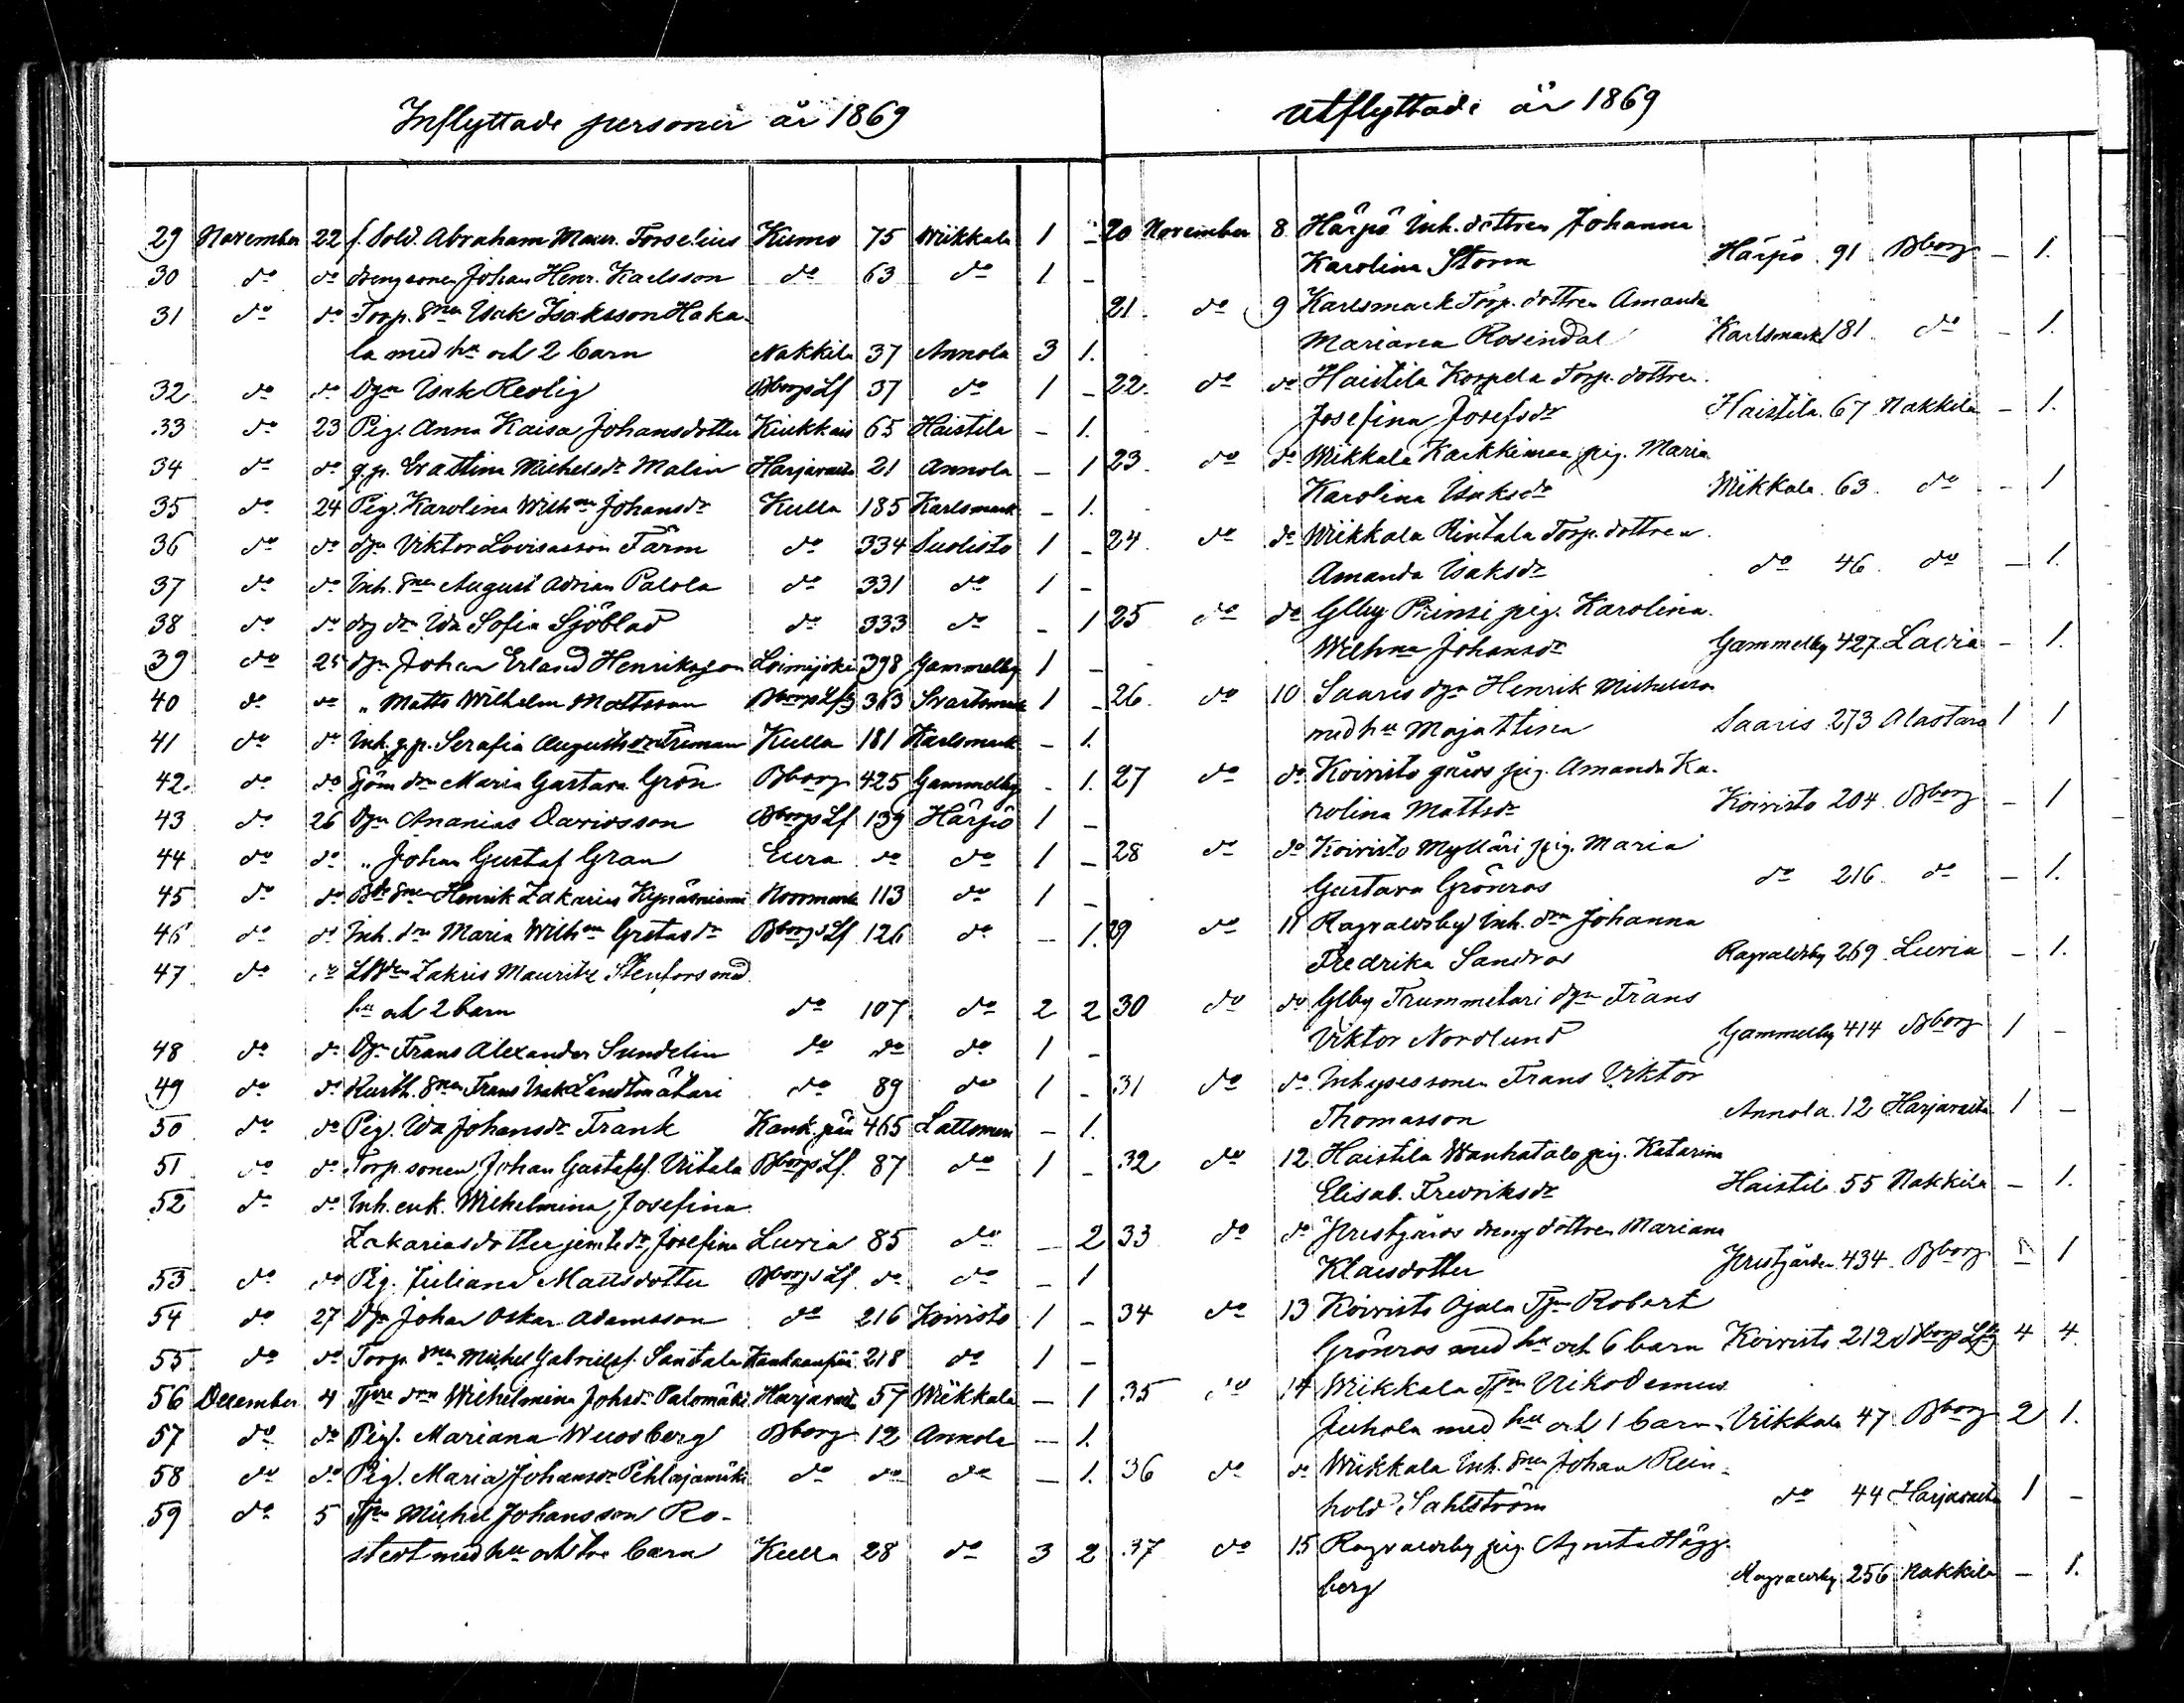 Inflyttade personer år 1869
29 November 22 f. Sold. Abraham Maur. Forselius Kumo 75 Wiikkala 1 -
30 do do drengsonen Johan Henr. Karlsson do 63 do 1 -
31 do do Torp. snen Isak Isaksson Haka-
la med hu och 2 barn Nakkila 37 Annola 3 1.
32 do do Dgn Isak Rolig Bborgs Lf 37 do 1 -
33 do 23 Pig. Anna Kaisa Johansdotter Kiukkais 65 Haistila - 1.
34 do do g.p. Eva Stina Michelsdr Malin Harjavalta 21 Annola - 1
35 do 24 Pig. Karolina Wilhna Johansdr Kulla 185 Karlsmark - 1.
36 do do dgn Viktor Lovisasson Färm do 334 Suolisto 1 -
37 do do Inh. snen August Adrian Palola do 331 do 1 -
38 do do dg drn Ida Sofia Sjöblad do 333 do - 1
39 do 25 dgn Johan Erland Henriksson Loimijoki 398 Gammelby 1 -
40 do do " Matts Wilhelm Mattsson Bborgs Lfg 363 Svartsmark 1 -
41 do do Inh. g.p. Serafia Augustsdr Friman Kulla 181 Karlsmark - 1.
42 do do Sjöm drn Maria Gustava Grön Bborg 425 Gammelby - 1.
43 do 26 Dgn Ananias Davidsson Bborgs Lf 139 Härpö 1 -
44 do do " Johan Gustaf Gran Eura do do 1 -
45 do do Bde snen Henrik Zakarias Kynäsniemi Norrmark 113 do 1 -
46 do do Inh. drn Maria Wilhna Gretasdr Bborgs Lf 126 do - 1.
47 do do Zakris Mauritz Stenfors med
hu och 2 barn do 107 do 2 2
48 do do Dgn Frans Alexander Sundelin do do do 1 -
49 do do Kusth. snen Frans Isak Landtmätari do 89 do 1 -
50 do do Pig. Ida Johansdr Frank Kank.pää 465 Lattomeri - 1.
51 do do Torp. sonen Johan Gustafsf. Viitala Bborgs Lf. 87 do 1 -
52 do do Inh. enk. Wilhelmina Josefina
Zakariasdotter jemte dr Josefina Luvia 85 do - 2
53 do do Pig. Juliana Mattsdotter Bborgs Lf do do - 1
54 do 27 Dgn Johan Oskar Adamsson do 216 Koivisto 1 -
55 do do Torp. snen Michel Gabrielsf. Santala Kankaanpää 218 do 1 -
56 December 4 Tjen drn Wilhelmina Johsdr Palomäki Harjavalta 57 Wiikkala - 1
57 do do Pig. Mariana Wuosberg Bborg 12 Annola - 1.
58 do do Pig. Maria Johansdr Pihlajamäki do do do - 1.
59 do 5 Tjen Michel Johansson Ro-
stedt med hu och tre barn Kulla 28 do 3 2
Utflyttade år 1869
20 November 8 Härpö Inh. dottren Johanna
Karolina Storm Härpö 91 Bborg - 1.
21 do 9 Karlsmark Torp. dottren Amanda
Mariana Rosendal Karlsmark 181 do - 1.
22 do do Haistila Korpela Torp. dottren
Josefina Josefsdr Haistila 67 Nakkila - 1.
23 do do Wiikkala Karkkimaa pig. Maria
Karolina Isaksdr Wiikkala 63 do - 1
24 do do Wiikkala Rintala Torp. dottren
Amanda Isaksdr do 46 do - 1.
25 do do Glby Prinsi pig. Karolina
Wilhna Johansdr Gammelby 427 Lavia - 1.
26 do 10 Saaris dgn Henrik Michelsson
med hu Maja Stina Saaris 273 Alastaro 1 1
27 do do Koivisto gård pig. Amanda Ka-
rolina Mattsdr Koivisto 204 Bborg - 1
28 do do Koivisto Mylläri pig. Maria
Gustava Grönros do 216 do - 1.
29 do 11 Ragvaldsby Inh. drn Johanna
Fredrika Sandros Ragvaldsby 269 Luvia - 1.
30 do do Glby Trummetari dgn Frans
Viktor Nordlund Gammelby 414 Bborg 1 -
31 do do Inhysessonen Frans Viktor
Thomasson Annola 12 Harjavalta 1 -
32 do 12 Haistila Wanhatalo pig. Katarina
Elisab. Fredriksdr Haistila 55 Nakkila - 1.
33 do do dreng dottren Mariana
Klaesdotter 434 Bborg - 1
34 do 13 Koivisto Ojala Tjen Robert
Grönros med hu och 6 barn Koivisto 212 Bborgs Lfg 4 4
35 do 14 Wiikkala Tjen Nikodemus
Juhola med hu och 1 barn Wiikkala 47 Bborg 2 1.
36 do do Wiikkala Inh. snen Johan Rein-
hold Sahlström do 44 Harjavalta 1 -
37 do 15 Ragvaldsby pig. Agneta Hägg-
berg Ragvaldsby 256 Nakkila - 1.